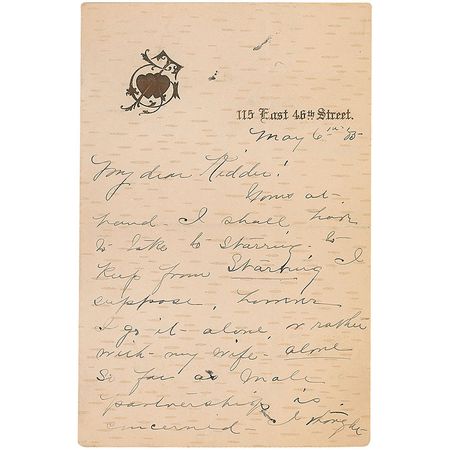 115 East 46th Street.
May 6th '85
My dear Kidder!
Yours at-
hand- I shall have
to take to Starring- to
keep from Starving I
suppose, however
I go it- alone or rather
with- my wife- alone
so far as male
partnership is
concerned- I thought